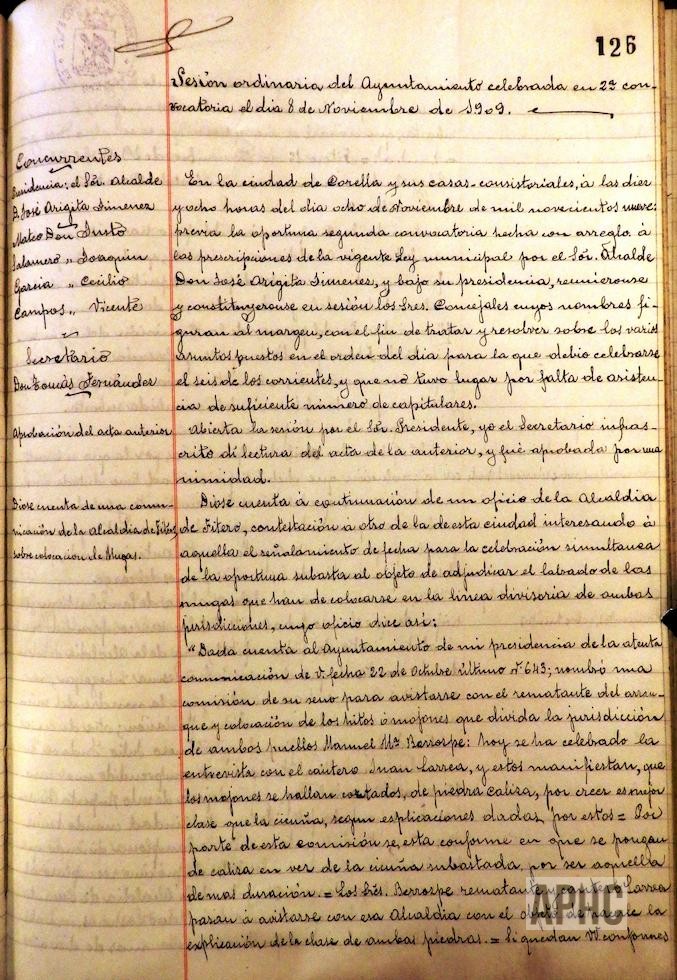 126
Sesión ordinaria del Ayuntamiento celebrada en 2ª con-
vocatoria el dia 8 de Noviembre de 1909.
Concurrentes
Presidencia: el Sór. Alcalde
D. José Arigita Jimenez
Mateo Don Justo
Salamero „ Joaquin
Garcia „ Cecilio
Campos „ Vicente
Secretario
Don Tomás Fernández
En la ciudad de Corella y sus casas-consistoriales, á las diez
y ocho horas del dia ocho de Noviembre de mil novecientos nueve:
previa la oportuna segunda convocatoria hecha con arreglo á
las prescripciones de la vigente Ley municipal por el Sór. Alcalde
Don José Arigita Jimenez, y bajo su presidencia, reunieronse
y constituyeronse en sesión los Sres. Concejales cuyos nombres fi-
guran al margen, con el fin de tratar y resolver sobre los varios
asuntos puestos en el orden del dia para la que debio celebrarse
el seis de los corrientes, y que no tuvo lugar por falta de asisten-
cia de suficiente número de capitulares.
Aprobación del acta anterior
Abierta la sesión por el Sór. Presidente, yo el Secretario infras-
crito di lectura del acta de la anterior, y fué aprobada por una
nimidad.
Diose cuenta de una comu-
nicación de la Alcaldia de Fitero,
sobre colocación de Mugas.
Diose cuenta á continuación de un oficio de la Alcaldia
de Fitero, contestación a otro de la de esta ciudad interesando á
aquella el señalamiento de fecha para la celebración simultanea
de la oportuna subasta al objeto de adjudicar el labrado de las
mugas que han de colocarse en la linea divisoria de ambas
jurisdicciones, cuyo oficio dice así:
"Dada cuenta al Ayuntamiento de mi presidencia de la atenta
comunicación de V. fecha 22 de Octubre último nº 643; nombró una
comisión de su seno para avistarse con el rematante del arran-
que y colocación de los hitos ó mojones que divida la jurisdicción
de ambos pueblos Manuel Mª Berrospe: hoy se ha celebrado la
entrevista con el cantero Juan Larrea, y estos manifiestan, que
los mojones se hallan cortados, de piedra caliza, por creer es mejor
clase que la cicuña, segun esplicaciones dadas por estos = Por
parte de esta comisión se esta conforme en que se pongan
de caliza en vez de la cicuña subastada, por ser aquella
de mas duración. = Los Sres. Berrospe rematante y cantero Larrea
pasan á avistarse con esa Alcaldia con el objeto de hacerle la
explicación de la clase de ambas piedras. = Si quedan VV conformes
APHC